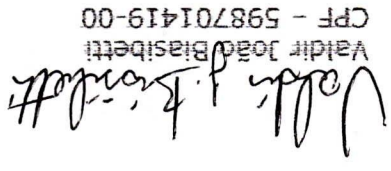 Valdir J. Biasibetti
Valdir João Biasibetti
CPF - 598701419-00